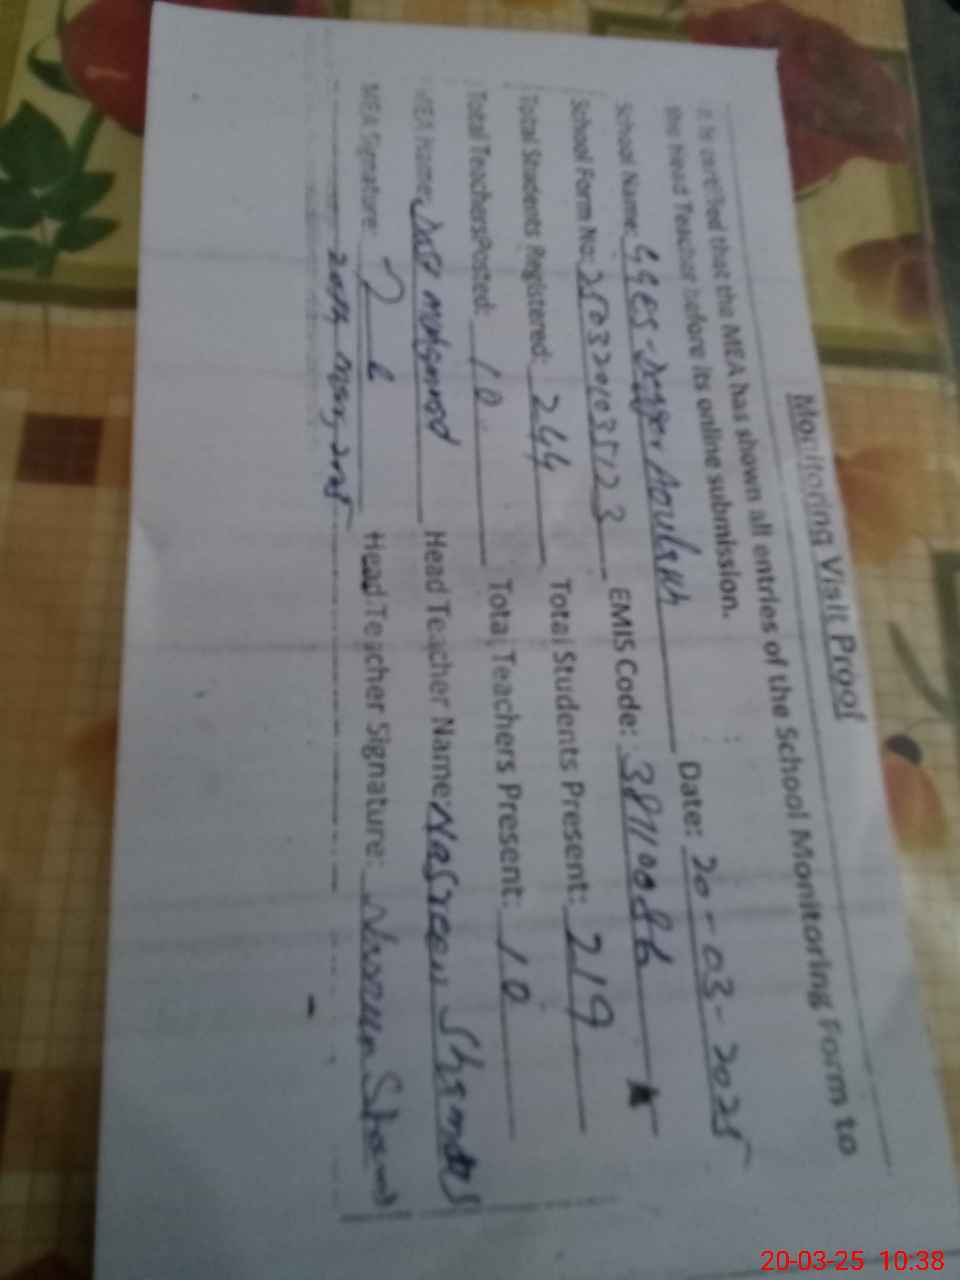 Monitoring Visit Proof
It is certified that the MEA has shown all entries of the School Monitoring Form to
the Head Teacher before its online submission.
School Name: GGES- Aoulakh Date: 20-03-2025
School Form No: 2503201035123 EMIS Code: 38110086
Total Students Registered: 244 Total Students Present: 219
Total TeachersPosted: 10 Total Teachers Present: 10
MEA Name: Head Teacher Name: Nasreen
MEA Signature: Head Teacher Signature:
20th 2025
20-03-25 10:38